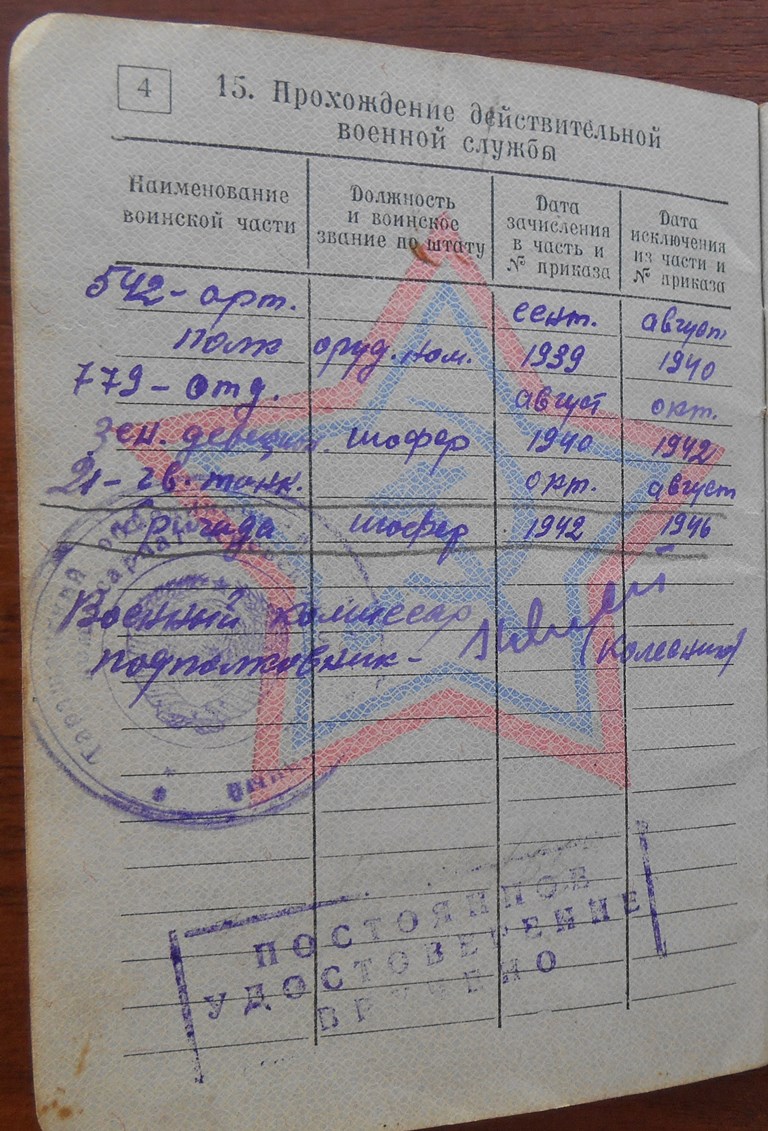 4
15. Прохождение действительной
военной службы
Наименование
воинской части
Должность
и воинское
звание по штату
Дата
зачисления
в часть и
№ приказа
Дата
исключения
из части и
№ приказа
542 - арт. сент. август
полк оруд. ном. 1939 1940
779 - отд. август окт.
зен. шофер 1940 1942
21 - гв. танк. окт. август
бригада шофер 1942 1946
Военный комиссар
подполковник - (Колесник)
ПОСТОЯННОЕ
УДОСТОВЕРЕНИЕ
ВРУЧЕНО